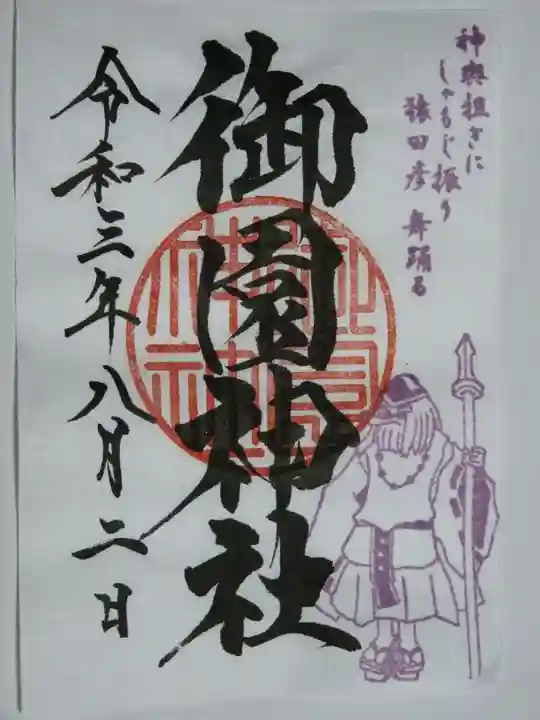 神輿担ぎに
しゃもじ振り
猿田彦 舞踊る
御園神社
令和三年八月二日